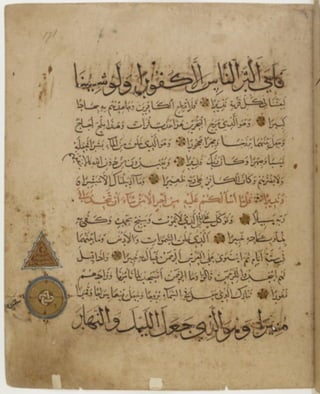 فابى اكثر الناس الا كفورا ولو شئنا
لبعثنا في كل قرية نذيرا فلا تطع الكافرين وجاهدهم به جهادا
كبيرا وهو الذي مرج البحرين هذا عذب فرات وهذا ملح اجاج
وجعل بينهما برزخا وحجرا محجورا وهو الذي خلق من الماء بشرا فجعله
نسبا وصهرا وكان ربك قديرا ويعبدون من دون الله ما لا
ينفعهم ولا يضرهم وكان الكافر على ربه ظهيرا وما ارسلناك الا مبشرا
ونذيرا قل ما اسألكم عليه من اجر الا من شاء ان يتخذ الى
ربه سبيلا وتوكل على الحي الذي لا يموت وسبح بحمده وكفى به
بذنوب عباده خبيرا الذي خلق السموات والارض وما بينهما
في ستة ايام ثم استوى على العرش الرحمن فاسأل به خبيرا واذا قيل
لهم اسجدوا للرحمن قالوا وما الرحمن انسجد لما تأمرنا وزادهم
نفورا تبارك الذي جعل في السماء بروجا وجعل فيها سراجا وقمرا
منيرا وهو الذي جعل الليل والنهار